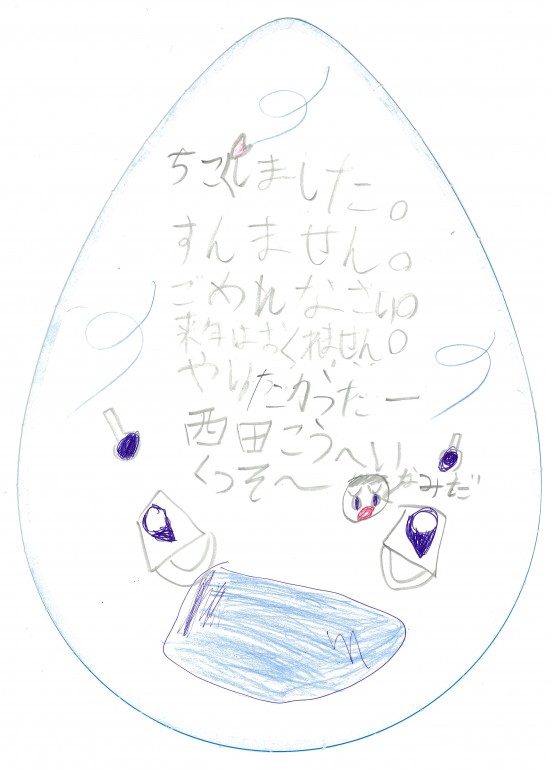 ちこくしました。
すんません。
ごめんなさい。
来年はおくれません。
やりたかったー
西田こうへい
くっそ〜
なみだ